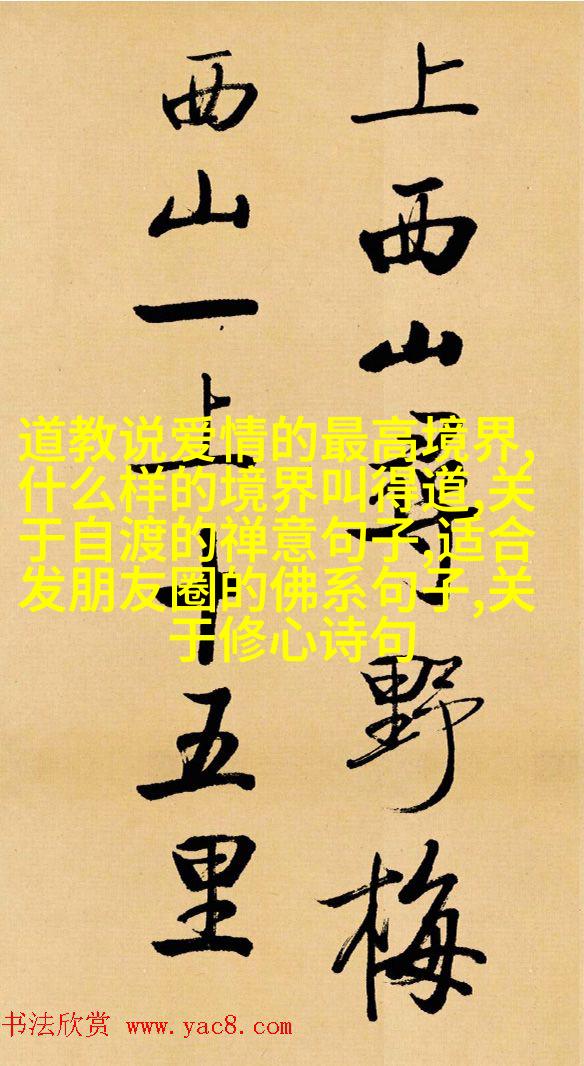 上西山尋野梅
西山一上十五里
道教说爱情的最高境界,
什么样的境界叫得道,关
于自渡的禅意句子,适合
发朋友圈的佛系句子,关
于修心诗句
书法欣赏 www.yac8.com